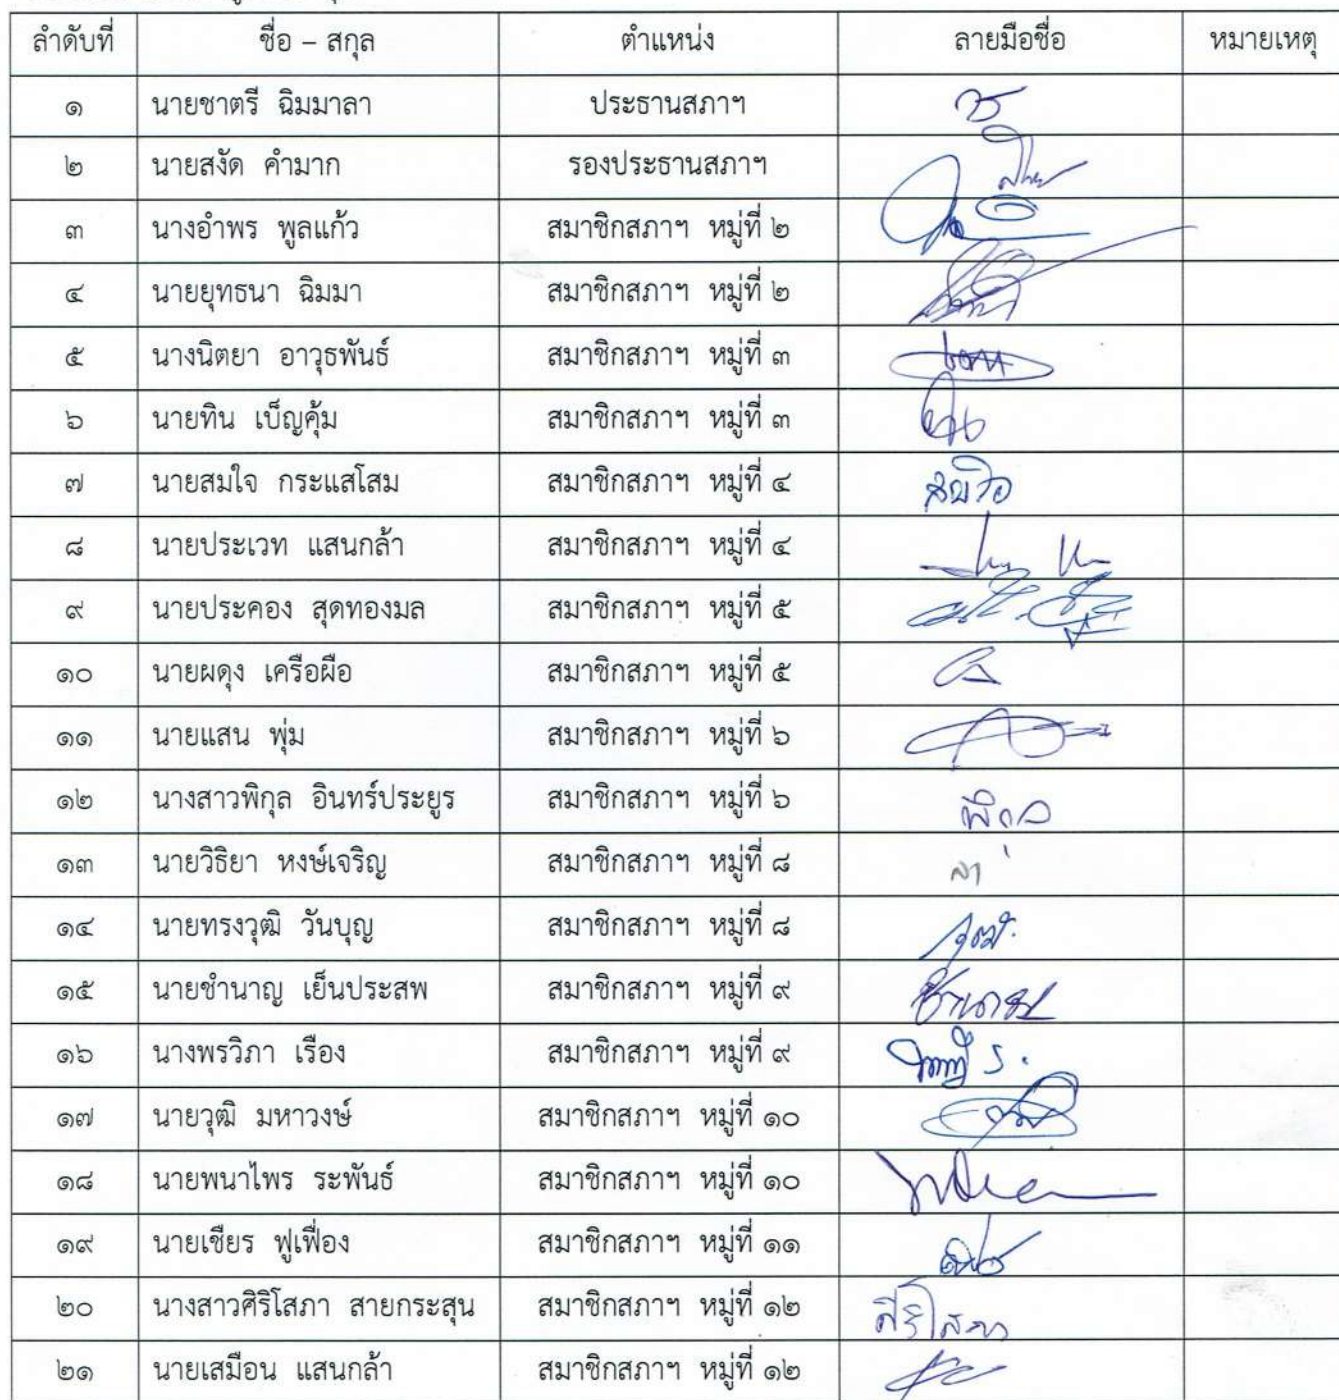 ลำดับที่ ชื่อ – สกุล ตำแหน่ง ลายมือชื่อ หมายเหตุ
๑ นายชาตรี ฉิมมาลา ประธานสภาฯ
๒ นายสงัด คำมาก รองประธานสภาฯ
๓ นางอำพร พูลแก้ว สมาชิกสภาฯ หมู่ที่ ๒
๔ นายยุทธนา ฉิมมา สมาชิกสภาฯ หมู่ที่ ๒
๕ นางนิตยา อาวุธพันธ์ สมาชิกสภาฯ หมู่ที่ ๓
๖ นายทิน เบ็ญคุ้ม สมาชิกสภาฯ หมู่ที่ ๓
๗ นายสมใจ กระแสโสม สมาชิกสภาฯ หมู่ที่ ๔
๘ นายประเวท แสนกล้า สมาชิกสภาฯ หมู่ที่ ๔
๙ นายประคอง สุดทองมล สมาชิกสภาฯ หมู่ที่ ๕
๑๐ นายผดุง เครือผือ สมาชิกสภาฯ หมู่ที่ ๕
๑๑ นายแสน พุ่ม สมาชิกสภาฯ หมู่ที่ ๖
๑๒ นางสาวพิกุล อินทร์ประยูร สมาชิกสภาฯ หมู่ที่ ๖ พิกุล
๑๓ นายวิธิยา หงษ์เจริญ สมาชิกสภาฯ หมู่ที่ ๘ ลา
๑๔ นายทรงวุฒิ วันบุญ สมาชิกสภาฯ หมู่ที่ ๘
๑๕ นายชำนาญ เย็นประสพ สมาชิกสภาฯ หมู่ที่ ๙ ชำนาญ
๑๖ นางพรวิภา เรือง สมาชิกสภาฯ หมู่ที่ ๙
๑๗ นายวุฒิ มหาวงษ์ สมาชิกสภาฯ หมู่ที่ ๑๐
๑๘ นายพนาไพร ระพันธ์ สมาชิกสภาฯ หมู่ที่ ๑๐
๑๙ นายเชียร ฟูเฟื่อง สมาชิกสภาฯ หมู่ที่ ๑๑
๒๐ นางสาวศิริโสภา สายกระสุน สมาชิกสภาฯ หมู่ที่ ๑๒ ศิริโสภา
๒๑ นายเสมือน แสนกล้า สมาชิกสภาฯ หมู่ที่ ๑๒